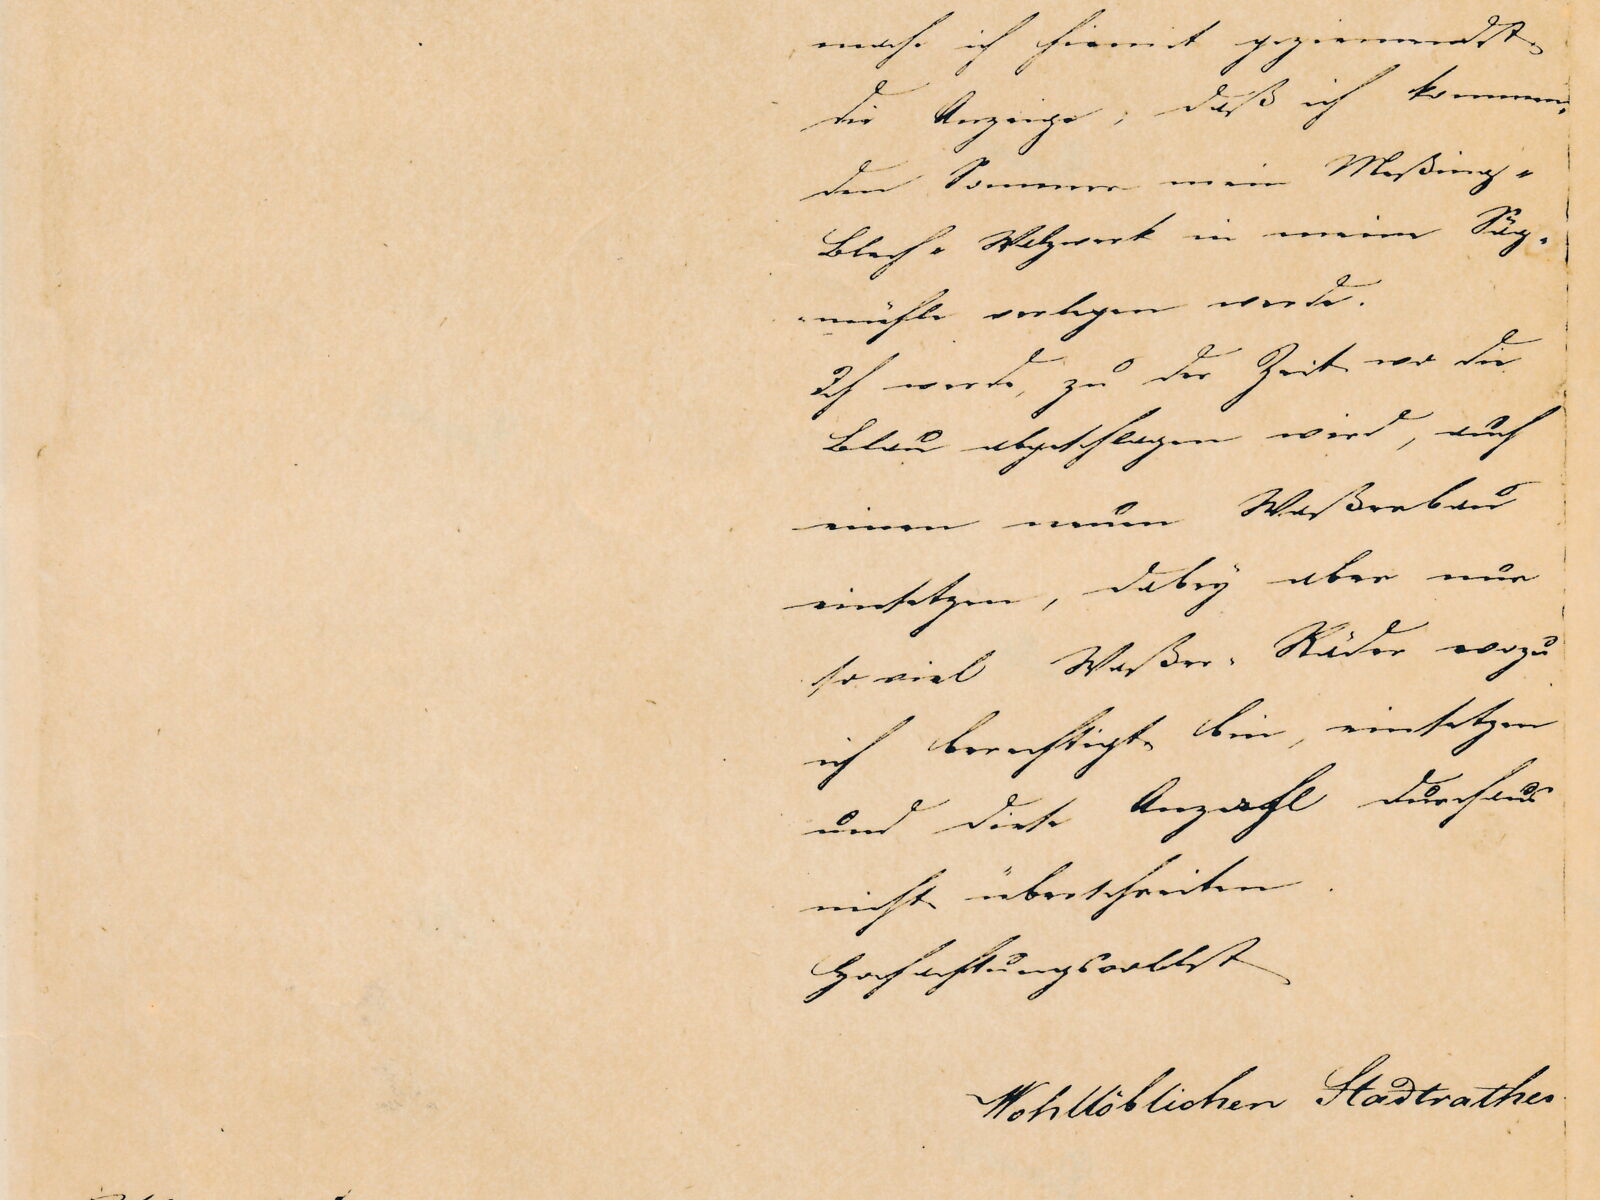 mache ich hiemit geziemendst
die Anzeige, daß ich kommen-
den Sommer mein Meßing-
Blech-Walzwerk in meine Säg-
-mühle verlegen werde.
Ich werde, zu der Zeit wo die
Blau abgeschlagen wird, auch
einen neuen Waßerbau
einsetzen, dabey aber nur
so viel Waßer-Räder wozu
ich berechtigt bin, einsetzen
und diese Anzahl durchaus
nicht überschreiten.
Hochachtungsvollst
Wohllöblichen Stadtrathes